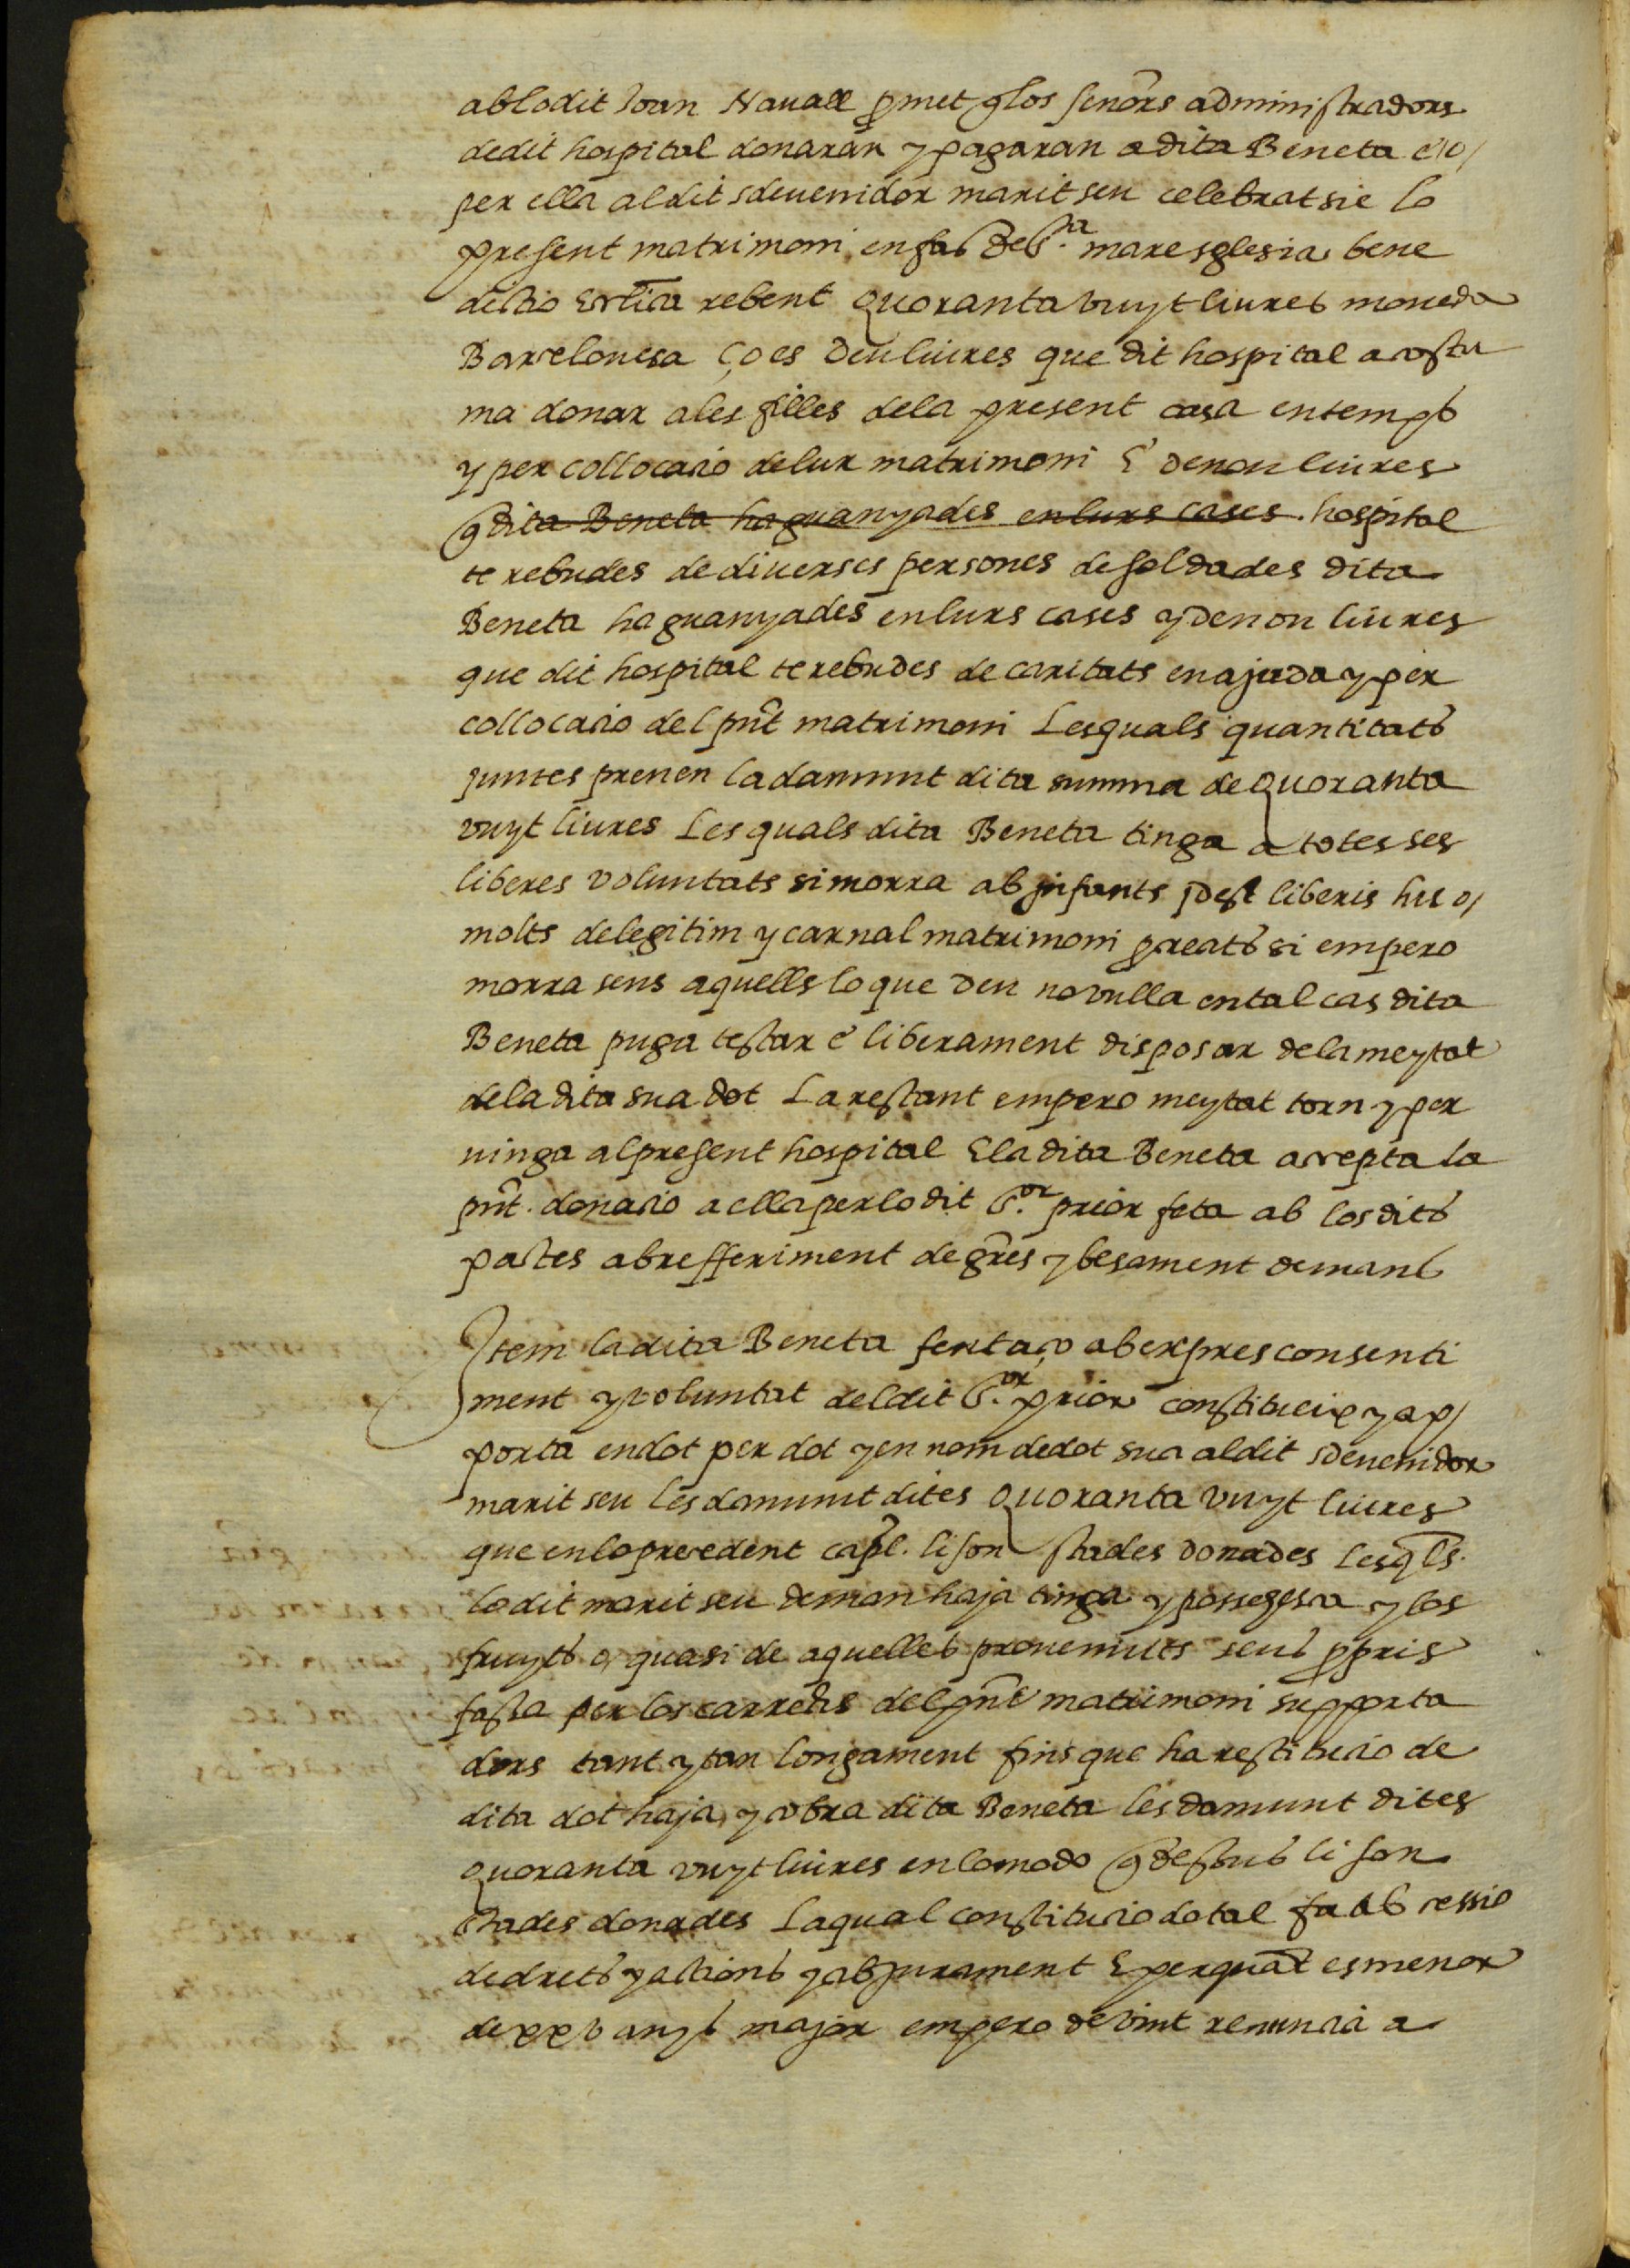 ablodit Joan Nauall ꝓmet q̃ los senõrs administradors
dedit hospital donaran y pagaran a dita Beneta e/o/
per ella aldit sdeuenidor marit seu celebrat sie lo
present matrimoni en fas de S.ta mare sglesia bene
dictio Ecc̃lica rebent quoranta vuyt liures moneda
Barcelonesa ço es deu liures que dit hospital acostu
ma donar ales filles dela present casa en temps
y per collocacio de lur matrimoni E denou liures
q̃ dita Beneta ha guanyades en lurs cases. hospital
te rebudes de diuerses persones de soldades dita
Beneta ha guanyades en lurs cases y denou liures
que dit hospital te rebudes de caritats en ajuda y per
collocacio del pñt matrimoni Lesquals quantitats
juntes prenen la damunt dita summa de quoranta
vuyt liures Les quals dita Beneta tinga a totes ses
liberes voluntats si morra ab infants idest liberis hu o/
molts de legitim y carnal matrimoni ꝓcreats si empero
morra sens aquells lo que Deu no vulla en tal cas dita
Beneta puga testar e liberament disposar dela meytat
dela dita sua dot La restant empero meytat torn y per
uinga al present hospital E la dita Beneta accepta la
pñt. donacio a ella per lo dit S.or prior feta ab los dits
pactes ab refferiment de gr̃es y besament de mans
Item la dita Beneta fent aço ab expres consenti
ment y voluntat del dit S.or prior constitueix y ap/
porta en dot per dot y en nom de dot sua al dit sdeuenidor
marit seu les damunt dites quoranta vuyt liures
que en lo precedent capl̃. li son stades donades Lesq̃ls.
lo dit marit seu deman haja tinga y possegesca y los
fruyts o/ quasi de aquelles prouenints seus ꝓpris
fassa per los carrechs del pñt matrimoni supporta
dors tant y tan longament fins que ha restitucio de
dita dot haja, y cobra dita Beneta les damunt dites
quoranta vuyt liures en lo modo q̃ dessus li son
stades donades Laqual constitucio dotal fa ab cessio
de drets y actions y ab jurament E per quãt es menor
de xxv anys major empero de vint renuncia a